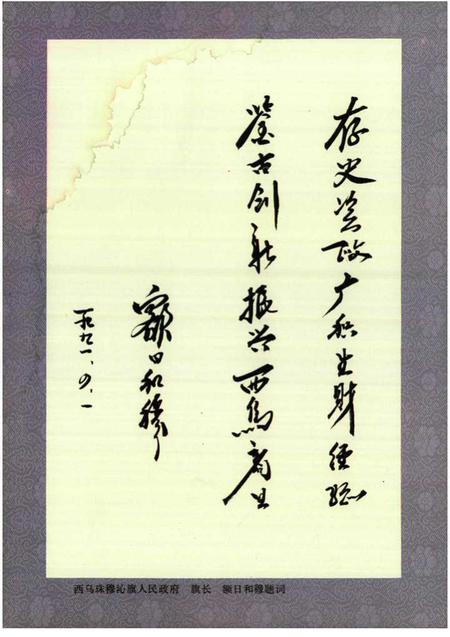 存史资政广积生财经验
鉴古创新振兴西乌商业
额日和穆
一九九一、四、一
西乌珠穆沁旗人民政府 旗长 额日和穆题词